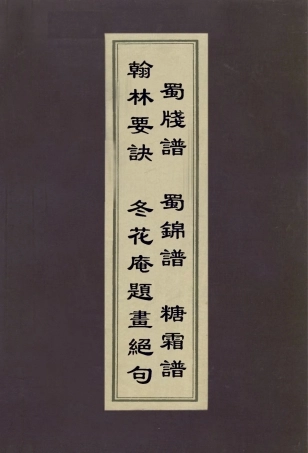 蜀牋譜 蜀錦譜 糖霜譜
翰林要訣 冬花庵題畫絕句